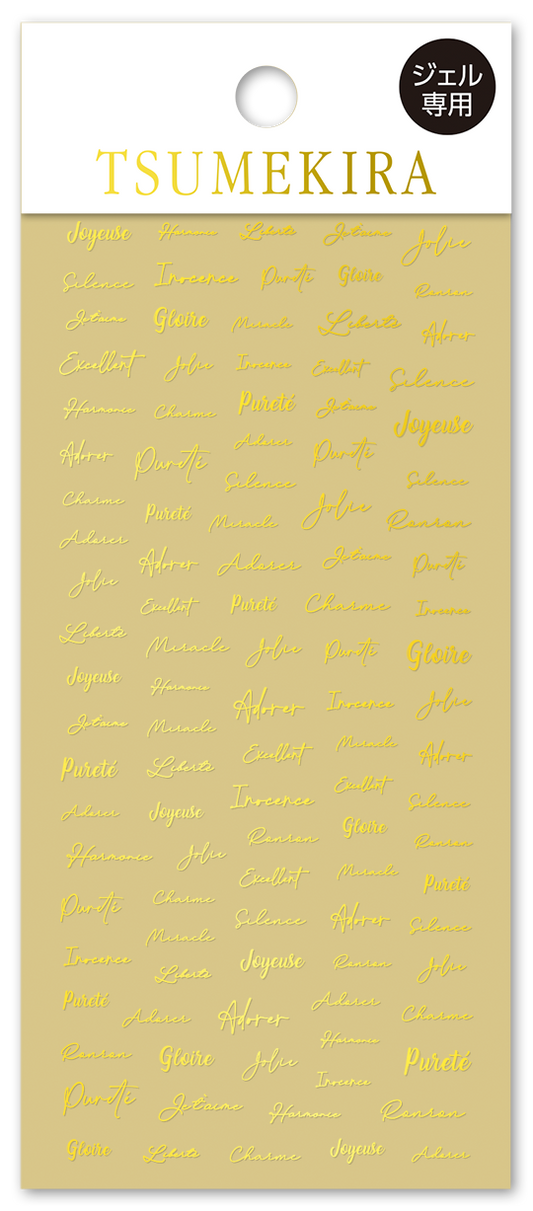 ジェル
専用
TSUMEKIRA
Joyeuse Harmonie Liberté Jet'aime Jolie
Silence Inocence Pureté Gloire Ronron
Jet'aime Gloire Miracle Liberté Adorer
Excellent Jolie Inocence Excellent Silence
Harmonie Charme Pureté Jet'aime Joyeuse
Adorer Pureté Adorer Pureté
Silence Silence
Charme Pureté Miracle Jolie Ronron
Adorer Adorer Adorer Jet'aime Pureté
Jolie Excellent Pureté Charme Inocence
Liberté Miracle Jolie Pureté Gloire
Joyeuse Harmonie Adorer Inocence Jolie
Jet'aime Miracle Excellent Miracle Adorer
Pureté Liberté Inocence Excellent Silence
Adorer Joyeuse Ronron Gloire Ronron
Harmonie Jolie Excellent Miracle Pureté
Pureté Charme Silence Adorer Silence
Miracle
Inocence Liberté Joyeuse Ronron Jolie
Pureté Adorer Adorer Adorer Charme
Harmonie
Ronron Gloire Jolie Inocence Pureté
Pureté Jet'aime Harmonie Ronron
Gloire Liberté Charme Joyeuse Adorer